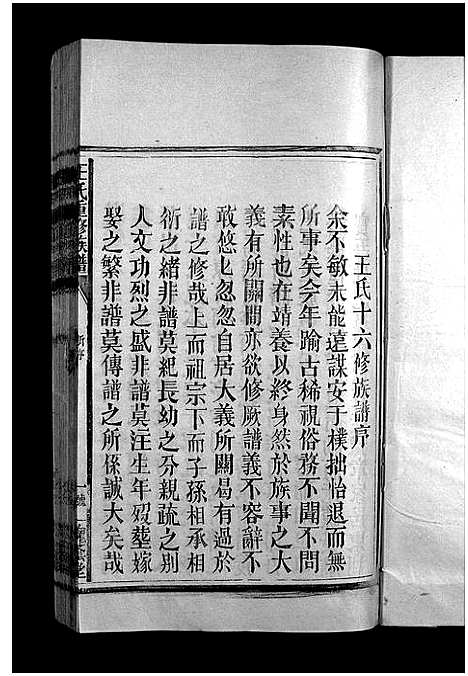 王氏十六修族譜序
余不敏未能遠謀安于樸拙怡退而無
所事矣今年踰古稀視俗務不聞不問
素性也在靖養以終身然於族事之大
義有所關問亦欲修厥譜義不容辭不
敢悠匕忽忽自居大義所關曷有過於
譜之修哉上而祖宗下而子孫相承相
衍之緒非譜莫紀長幼之分親疏之別
人文功烈之盛非譜莫注生年歿葬嫁
娶之繁非譜莫傳譜之所係誠大矣哉
王氏重修族譜
序